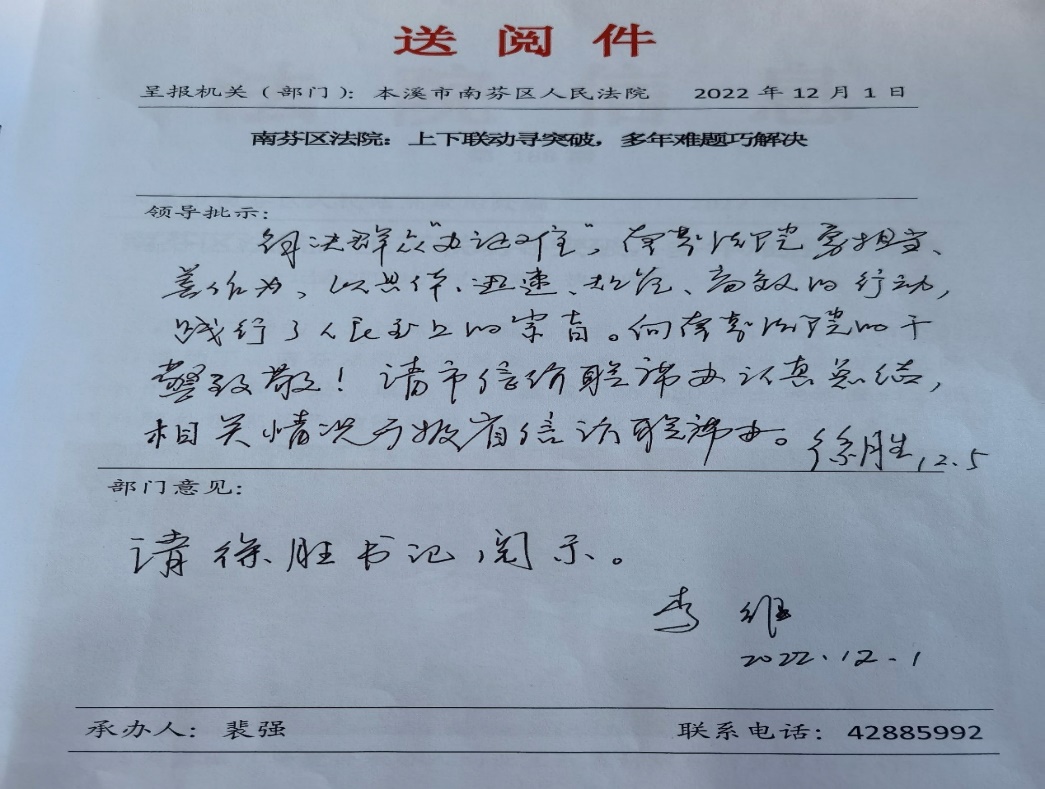 送阅件
呈报机关（部门）：本溪市南芬区人民法院 2022年12月1日
南芬区法院：上下联动寻突破，多年难题巧解决
领导批示：
解决群众“办证难”，南芬法院勇担当、
善作为，以具体、迅速、规范、高效的行动，
践行了人民至上的宗旨。向南芬法院的干
警致敬！请市信访联席办认真总结，
相关情况可报省信访联席办。徐胜 12.5
部门意见：
请徐胜书记阅示。
李维
2022.12.1
承办人：裴强 联系电话：42885992